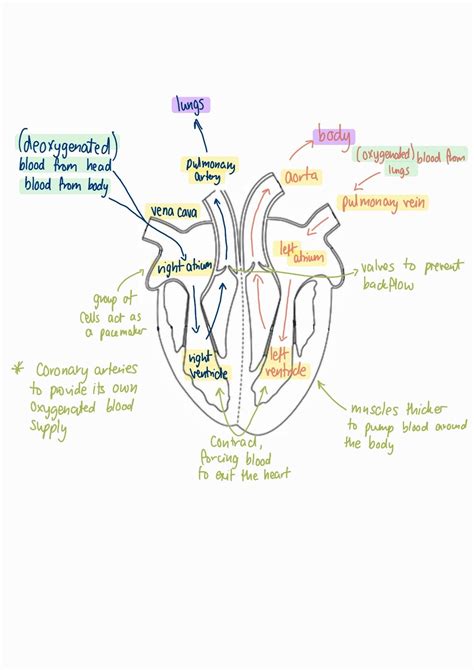 lungs
body
(deoxygenated)
blood from head
blood from body
pulmonary
artery
aorta
(oxygenated) blood from
lungs
pulmonary vein
vena cava
left
atrium
right atrium
valves to prevent
backflow
group of
cells act as
a pacemaker
right
ventricle
left
ventricle
* Coronary arteries
to provide its own
oxygenated blood
supply
muscles thicker
to pump blood around
the body
contract,
forcing blood
to exit the heart